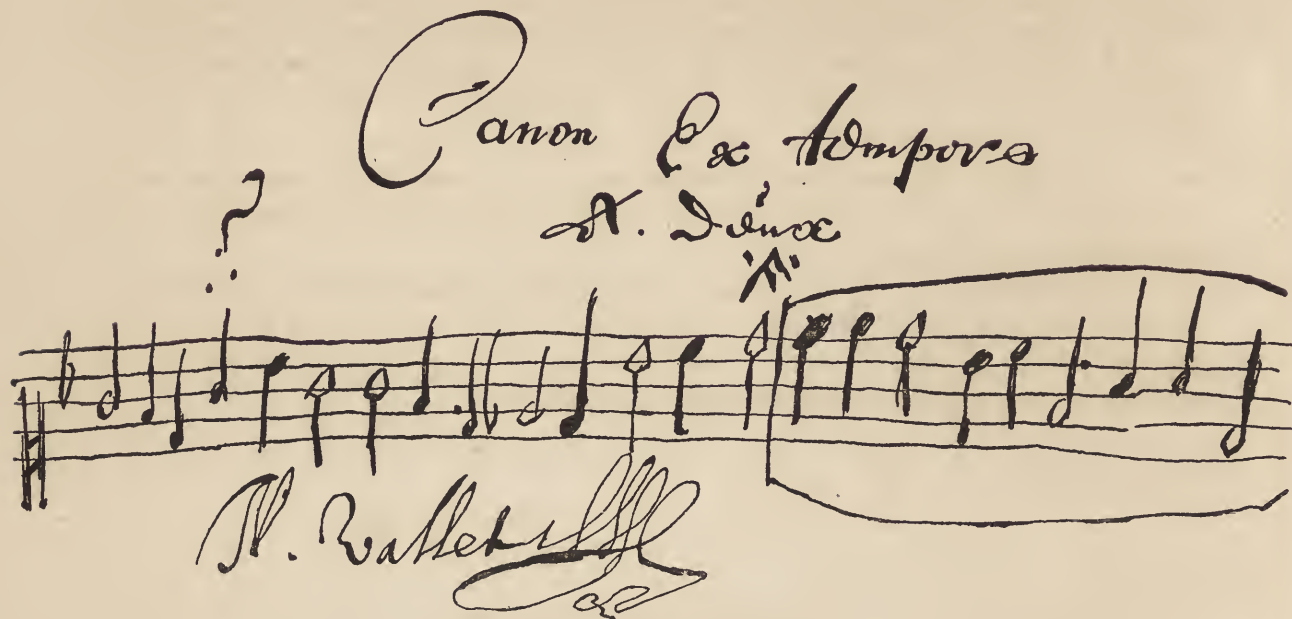 Canon Ex tempore
A. Deux
N. Vallet